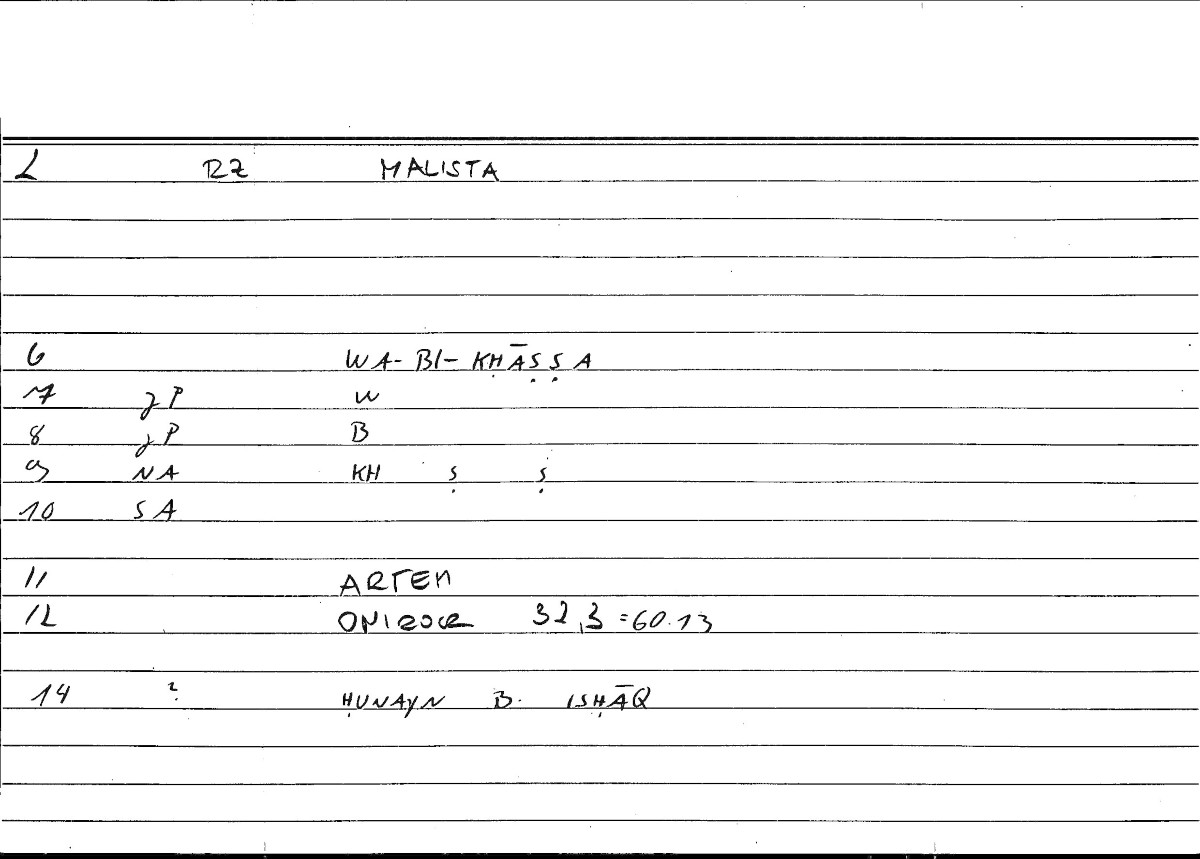 2 RZ MALISTA
6 WA-BI-KḤĀṢṢA
7 JP W
8 JP B
9 NA KH Ṣ Ṣ
10 SA
11 ARTEM
12 ONIROCR 32,3 = 60.13
14 ? ḤUNAYN B. ISḤĀQ